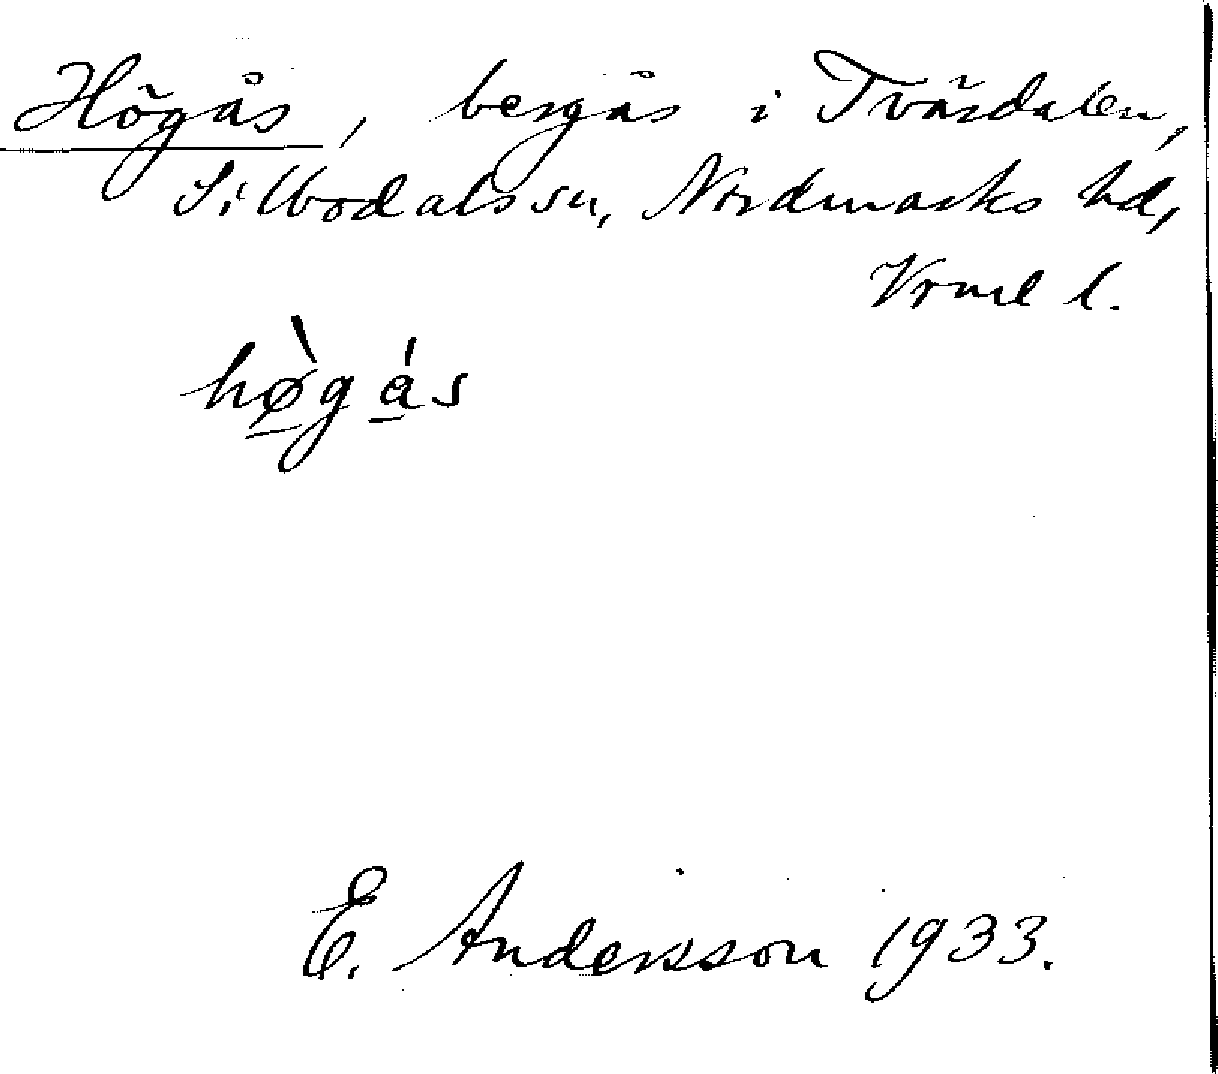 Högås, bergås i Tvärdalen,
Silbodals sn, Nordmarks hd,
Vrml l.
hø̱̀gá̱s
E. Andersson 1933.